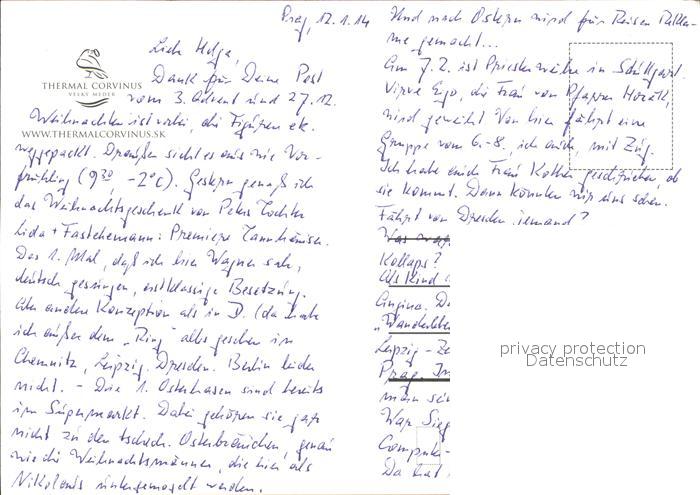 Prag, 12.1.14
Liebe Helga,
THERMAL CORVINUS
VEĽKÝ MEDER
Dank für Deine Post
vom 3. Advent und 27.12.
Weihnachten ist vorbei, die Figuren etc.
WWW.THERMALCORVINUS.SK
weggepackt. Draußen sieht es aus wie Vor-
frühling (9:30, -2°C). Gestern genoß ich
das Weihnachtsgeschenk von Peters Tochter
Lida + Fastehemann: Premiere Tannhäuser.
Das 1. Mal, daß ich hier Wagner sah,
deutsch gesungen, erstklassige Besetzung.
Aber andere Konzeption als in D. (da habe
ich außer dem „Ring" alles gesehen in
Chemnitz, Leipzig, Dresden. Berlin leider
nicht. - Die 1. Osterhasen sind bereits
im Supermarkt. Dabei gehören sie gar
nicht zu den tschech. Osterbräuchen, genau
wie die Weihnachtsmänner, die hier als
Nikolaus umgemogelt werden.
Und nach Ostern wird für Reisen Rekla-
me gemacht...
Am 7.2. ist Priesterweihe in Stuttgart.
die Frau von Pfarrer
wird geweiht. Von hier fährt eine
Gruppe vom 6.-8., ich auch, mit Zug.
Ich habe auch Frau geschrieben, ob
sie kommt. Dann könnten wir uns sehen.
Fährt von Dresden jemand?
Was
Kollaps?
Als Kind
Angina. Da
„Wanderleben
Leipzig - Ze
Prag. In
man sei
War Sieg
Computer-
Da hat
privacy protection
Datenschutz